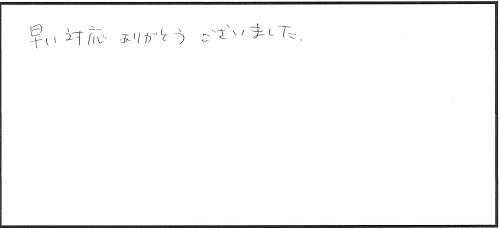 早い対応 ありがとう ございました.